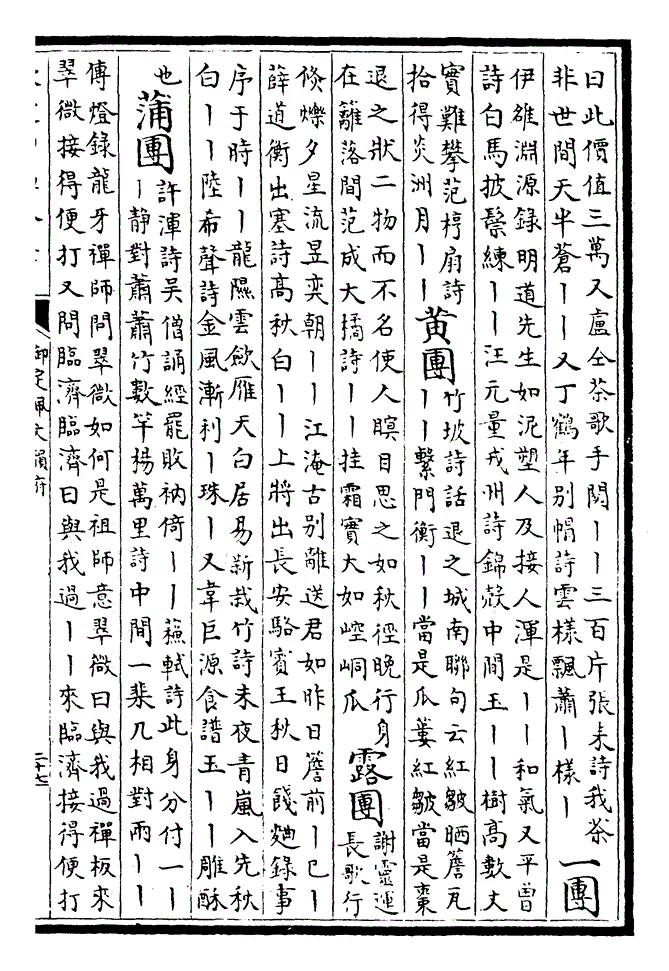 曰此價值三萬又盧仝茶歌手閱丨丨三百片張耒詩我茶
非世間天半蒼丨丨又丁鶴年別帽詩雲樣飄蕭丨樣丨
一團
伊雒淵源錄明道先生如泥塑人及接人渾是丨丨和氣又平曾
詩白馬披鬃練丨丨汪元量戎州詩錦殽中間玉丨丨樹高數丈
實難攀范梈扇詩
拾得炎洲月丨丨
黃團
竹坡詩話退之城南聯句云紅皺晒簷瓦
丨丨繫門衡丨丨當是瓜蔞紅皺當是棗
退之狀二物而不名使人瞑目思之如秋徑晚行身
在籬落間范成大橘詩丨丨挂霜實大如崆峒瓜
露團
謝靈運
長歌行
倐爍夕星流昱奕朝丨丨江淹古别離送君如昨日簷前丨已丨
薛道衡出塞詩高秋白丨丨上將出長安駱賓王秋日餞麯錄事
序于時丨丨龍隰雲斂雁天白居易新栽竹詩未夜青嵐入先秋
白丨丨陸希聲詩金風漸利丨珠丨又韋巨源食譜玉丨丨雕酥
也
蒲團
許渾詩吳僧誦經罷敗衲倚丨丨蘇軾詩此身分付一丨丨
丨靜對蕭蕭竹數竿楊萬里詩中間一棐几相對兩丨丨
傳燈錄龍牙禪師問翠微如何是祖師意翠微曰與我過禪板來
翠微接得便打又問臨濟臨濟曰與我過丨丨來臨濟接得便打
御定佩文韻府
二十七